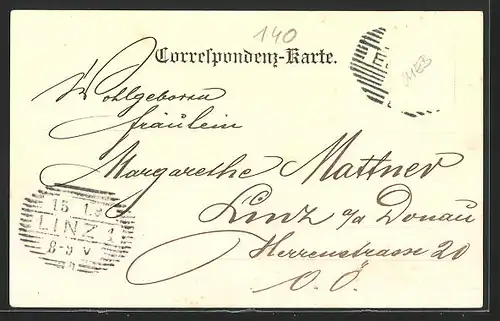 140
Correspondenz-Karte.
MEB
Wohlgeboren
Fräulein
Margarethe Mattner
Linz a/a Donau
Herrenstrasse 20
O. Ö.
15 1.9
LINZ 1
8-9 V